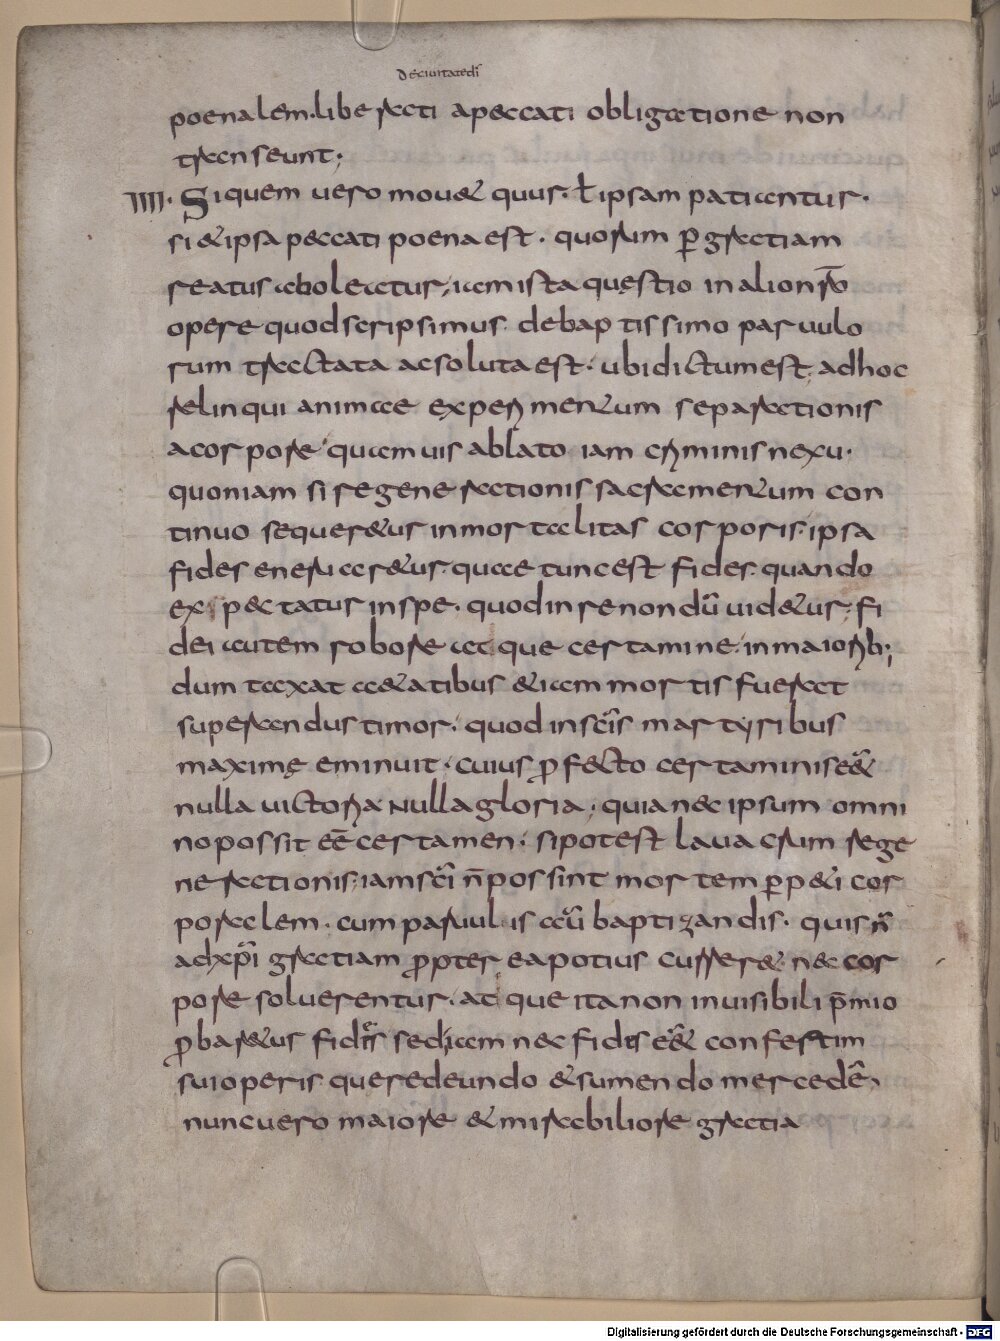 De ciuitate di
poenalem. liberati a peccati obligatione non
transeunt;
IIII. Siquem uero mouet quur. ł ipsam patiantur.
si et ipsa peccati poena est. quorum p gratiam
reatus aboleatur, iam ista questio in alio nr̄o
opere quod scripsimus. de baptissimo paruulo
rum tractata ac soluta est. ubi dictum est. ad hoc
relinqui animae experimentum separationis
a corpore quamuis ablato iam criminis nexu.
quoniam si regenerationis sacramentum con
tinuo sequeretur inmortalitas corporis. ipsa
fides eneruaretur. quae tunc est fides. quando
expectatur in spe. quod in re nondū uidetur. fi
dei autem robore atque certamine. in maiorib;
dum taxat aetatibus etiam mortis fuerat
superandus timor. quod in sc̄is martyribus
maxime eminuit. cuius pfecto certaminis eēt
nulla uictoria nulla gloria. quia nec ipsum omni
no possit eē certamen. si potest lauacrum rege
nerationis. iam sc̄i n̄ possint mortem ppeti cor
poralem. cum paruulis aū baptizandis. quis n̄
ad xp̄i gratiam ppter ea potius curreret. nec cor
pore solueretur. atque ita non inuisibili p̄mio
pbaretur fides sed iam nec fides eēt confestim
sui operis querendo et sumendo mercedē.
nunc uero maiore et mirabiliore gratia
Digitalisierung gefördert durch die Deutsche Forschungsgemeinschaft - DFG